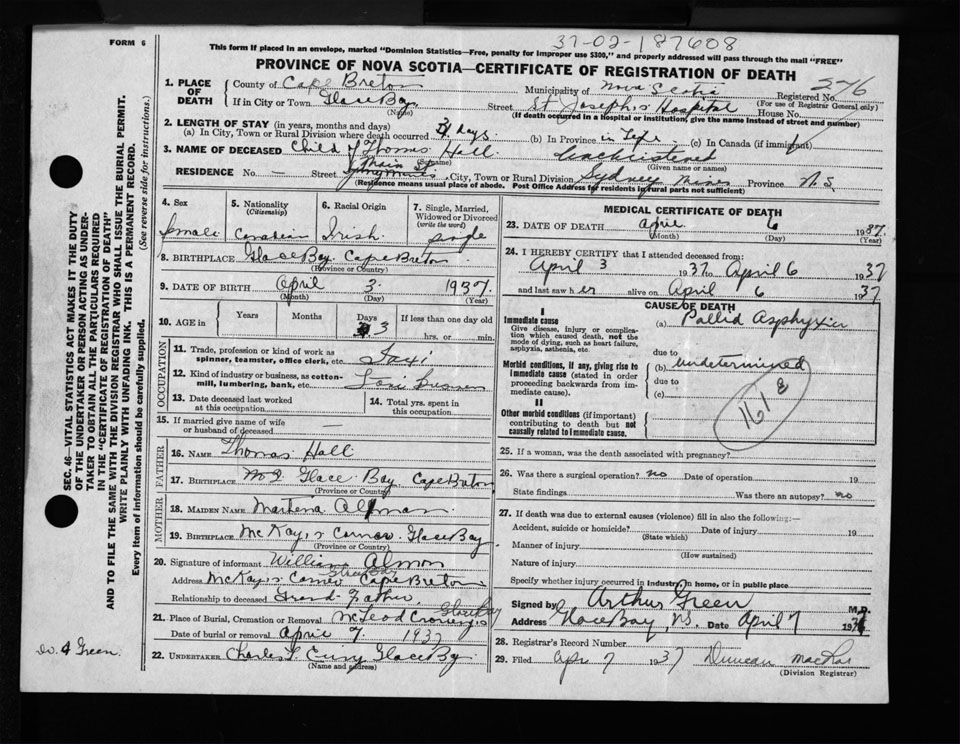 FORM 6
37-02-187608
This form if placed in an envelope, marked "Dominion Statistics—Free, penalty for improper use $300," and properly addressed will pass through the mail "FREE"
PROVINCE OF NOVA SCOTIA—CERTIFICATE OF REGISTRATION OF DEATH
276
1. PLACE OF DEATH
County of Cape Breton
Municipality of Nova Scotia
Registered No.
(For use of Registrar General only)
If in City or Town Glace Bay
(Name)
Street St Joseph's Hospital House No.
(If death occurred in a Hospital or institution, give the name instead of street and number)
2. LENGTH OF STAY (in years, months and days)
(a) In City, Town or Rural Division where death occurred 3 days. (b) In Province in Life (c) In Canada (if immigrant)
3. NAME OF DECEASED Child of Thomas Hall Unchristened
(Given name or names)
RESIDENCE No. — Street Main St Sydney Mines City, Town or Rural Division Sydney Mines Province N.S.
(Residence means usual place of abode. Post Office Address for residents in rural parts not sufficient)
4. Sex
female
5. Nationality
(Citizenship)
Canadian
6. Racial Origin
Irish
7. Single, Married, Widowed or Divorced
(write the word)
single
8. BIRTHPLACE Glace Bay Cape Breton
(Province or Country)
9. DATE OF BIRTH April 3. 1937.
(Month) (Day) (Year)
10. AGE in
Years
Months
Days
3
If less than one day old
hrs. or min.
OCCUPATION
11. Trade, profession or kind of work as spinner, teamster, office clerk, etc. Taxi
12. Kind of industry or business, as cotton-mill, lumbering, bank, etc. Taxi Business
13. Date deceased last worked at this occupation
14. Total yrs. spent in this occupation
15. If married give name of wife or husband of deceased —
FATHER
16. NAME Thomas Hall
17. BIRTHPLACE Glace Bay, Cape Breton
(Province or Country)
MOTHER
18. MAIDEN NAME Almon
19. BIRTHPLACE McKay's Corner. Glace Bay
(Province or Country)
20. Signature of informant William Almon
Address McKay's Corner Street Cape Breton
Relationship to deceased Grand-Father
21. Place of Burial, Cremation or Removal McLeod Crossing Glace Bay
Date of burial or removal April 7. 1937
22. UNDERTAKER Charles Glace Bay
(Name and address)
MEDICAL CERTIFICATE OF DEATH
23. DATE OF DEATH April 6 1937.
(Month) (Day) (Year)
24. I HEREBY CERTIFY that I attended deceased from:
April 3 1937 to April 6 1937
and last saw her alive on April 6 1937
CAUSE OF DEATH
I
Immediate cause
Give disease, injury or complication which caused death, not the mode of dying, such as heart failure, asphyxia, asthenia, etc.
(a) Pallid Asphyxia
due to
Morbid conditions, if any, giving rise to immediate cause (stated in order proceeding backwards from immediate cause).
(b) undetermined
due to
(c)
161 8
II
Other morbid conditions (if important) contributing to death but not causally related to immediate cause.
25. If a woman, was the death associated with pregnancy?
26. Was there a surgical operation? no Date of operation 19
State findings Was there an autopsy? no
27. If death was due to external causes (violence) fill in also the following:—
Accident, suicide or homicide? Date of injury 19
(State which)
Manner of injury
(How sustained)
Nature of injury
Specify whether injury occurred in industry, in home, or in public place
Signed by Arthur Green M.D.
Address Glace Bay, N.S. Date April 7 193
28. Registrar's Record Number
29. Filed Apr 7 1937 Duncan
(Division Registrar)
SEC. 46—VITAL STATISTICS ACT MAKES IT THE DUTY OF THE UNDERTAKER OR PERSON ACTING AS UNDERTAKER TO OBTAIN ALL THE PARTICULARS REQUIRED IN THE "CERTIFICATE OF REGISTRATION OF DEATH" AND TO FILE THE SAME WITH THE DIVISION REGISTRAR WHO SHALL ISSUE THE BURIAL PERMIT.
WRITE PLAINLY WITH UNFADING INK. THIS IS A PERMANENT RECORD.
Every item of information should be carefully supplied. (See reverse side for instructions.)
Green.